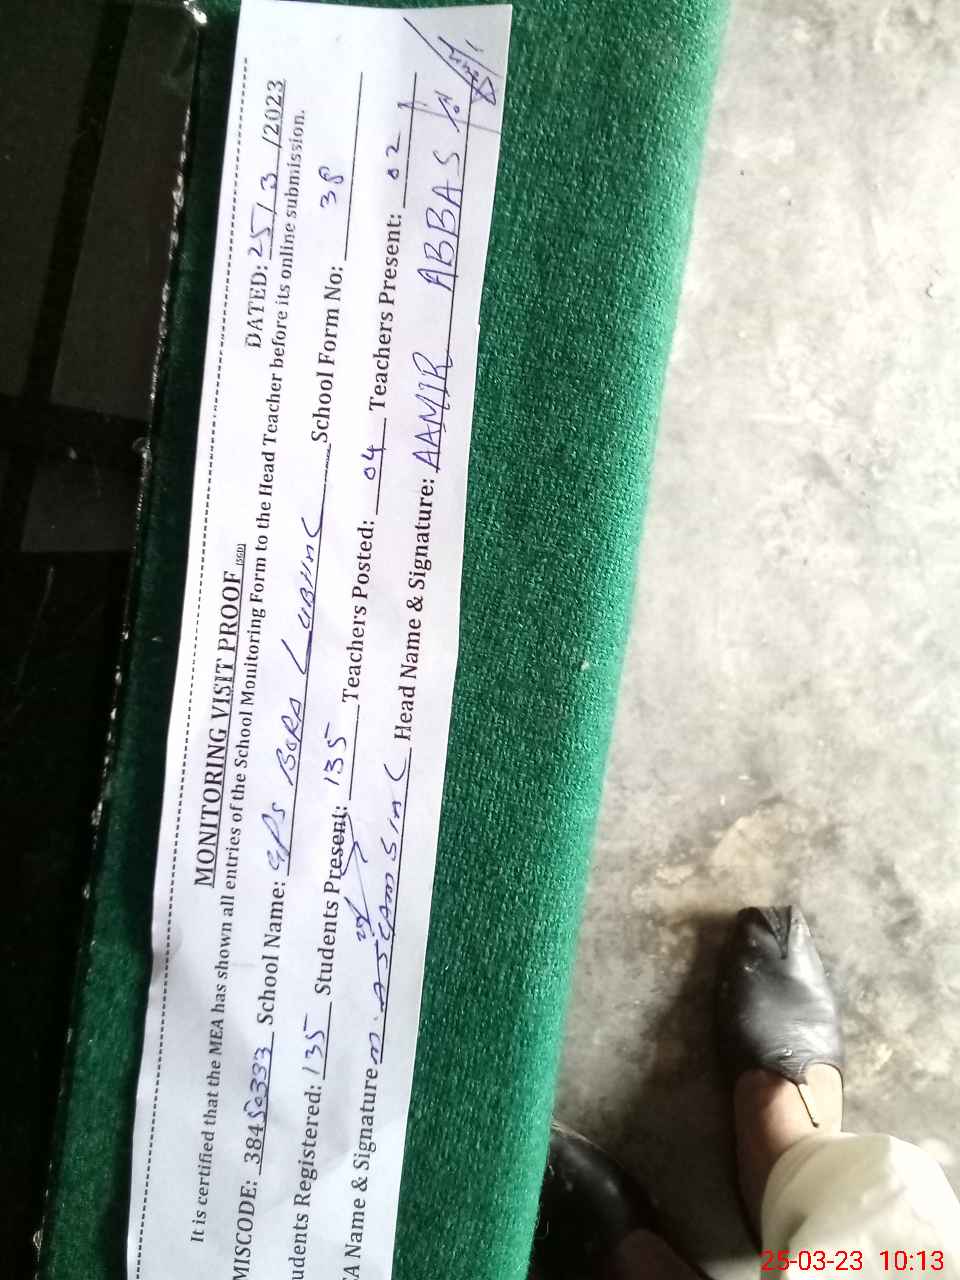 MONITORING VISIT PROOF (SGD)
DATED: 25/3/2023
It is certified that the MEA has shown all entries of the School Monitoring Form to the Head Teacher before its online submission.
MISCODE: 38450333 School Name: GPS School Form No: 38
udents Registered: 135 Students Present: 135 Teachers Posted: 04 Teachers Present: 02
A Name & Signature Head Name & Signature: AAMIR ABBAS
25-03-23 10:13